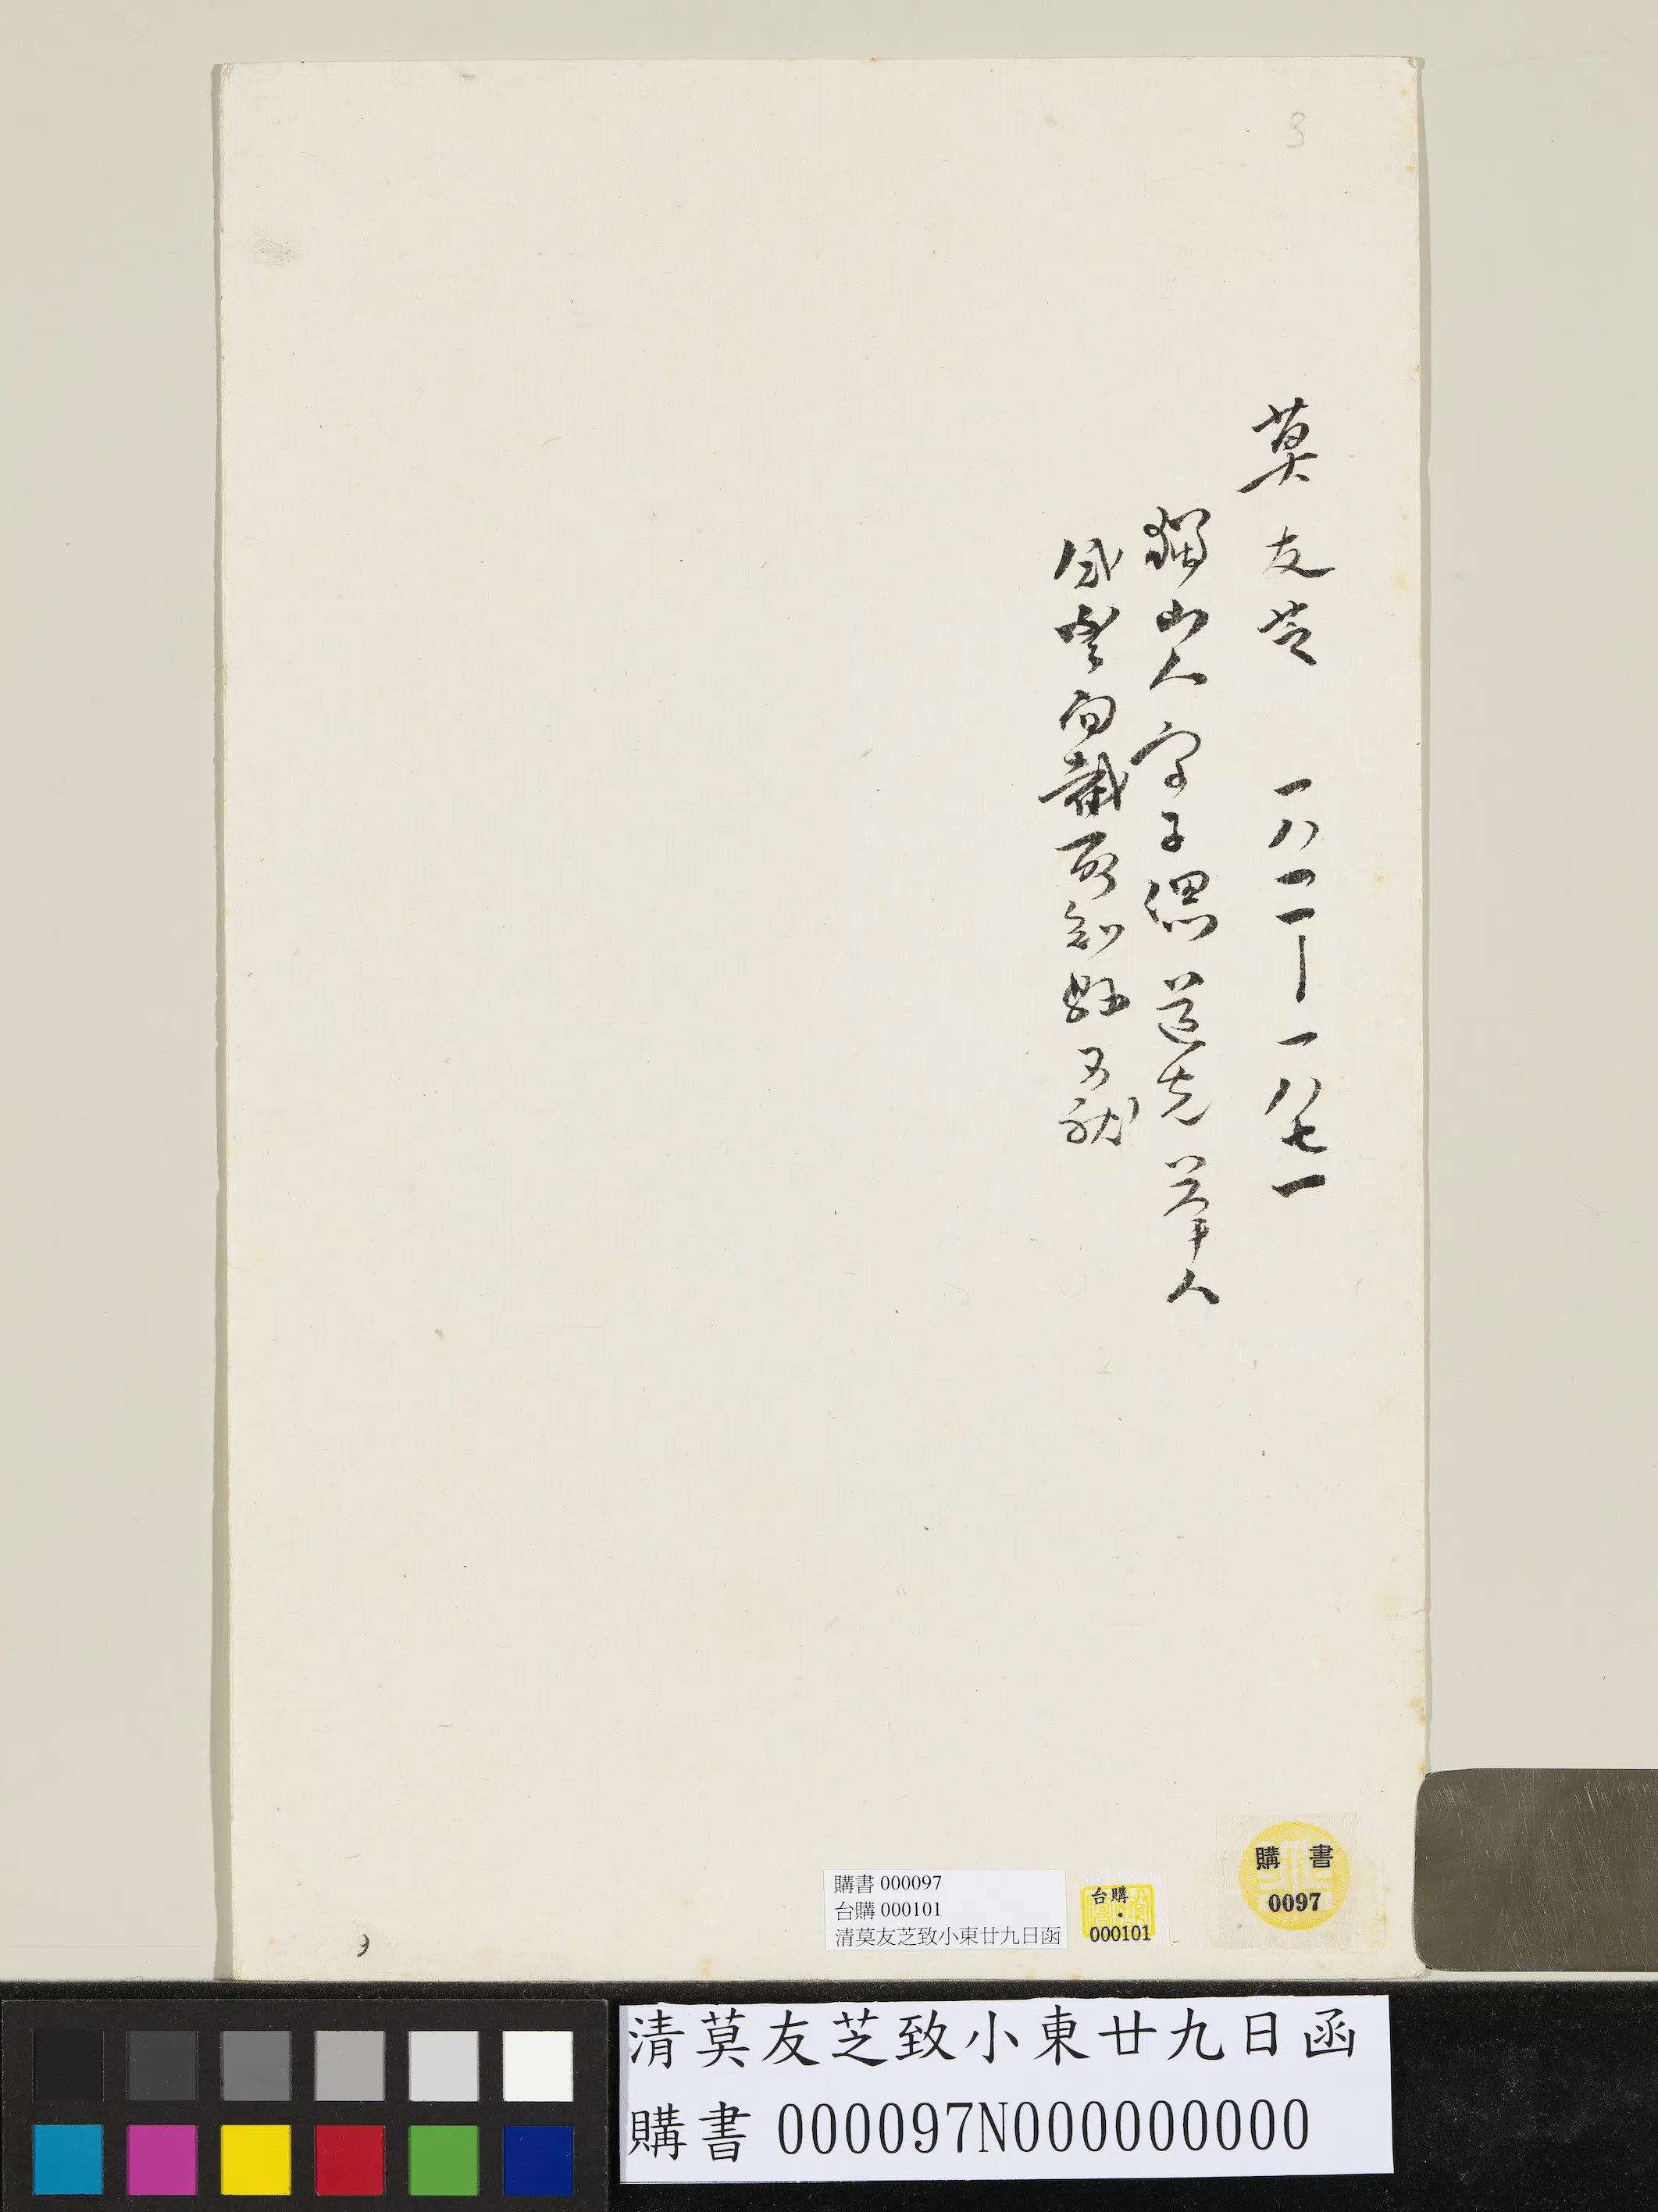 3
莫友芝 一八一一—一八七一
獨山人 字子偲 道光舉人
咸豐間截取知縣 不就
購書
0097
台購
000101
購書 000097
台購 000101
清莫友芝致小東廿九日函
清莫友芝致小東廿九日函
購書 000097N000000000